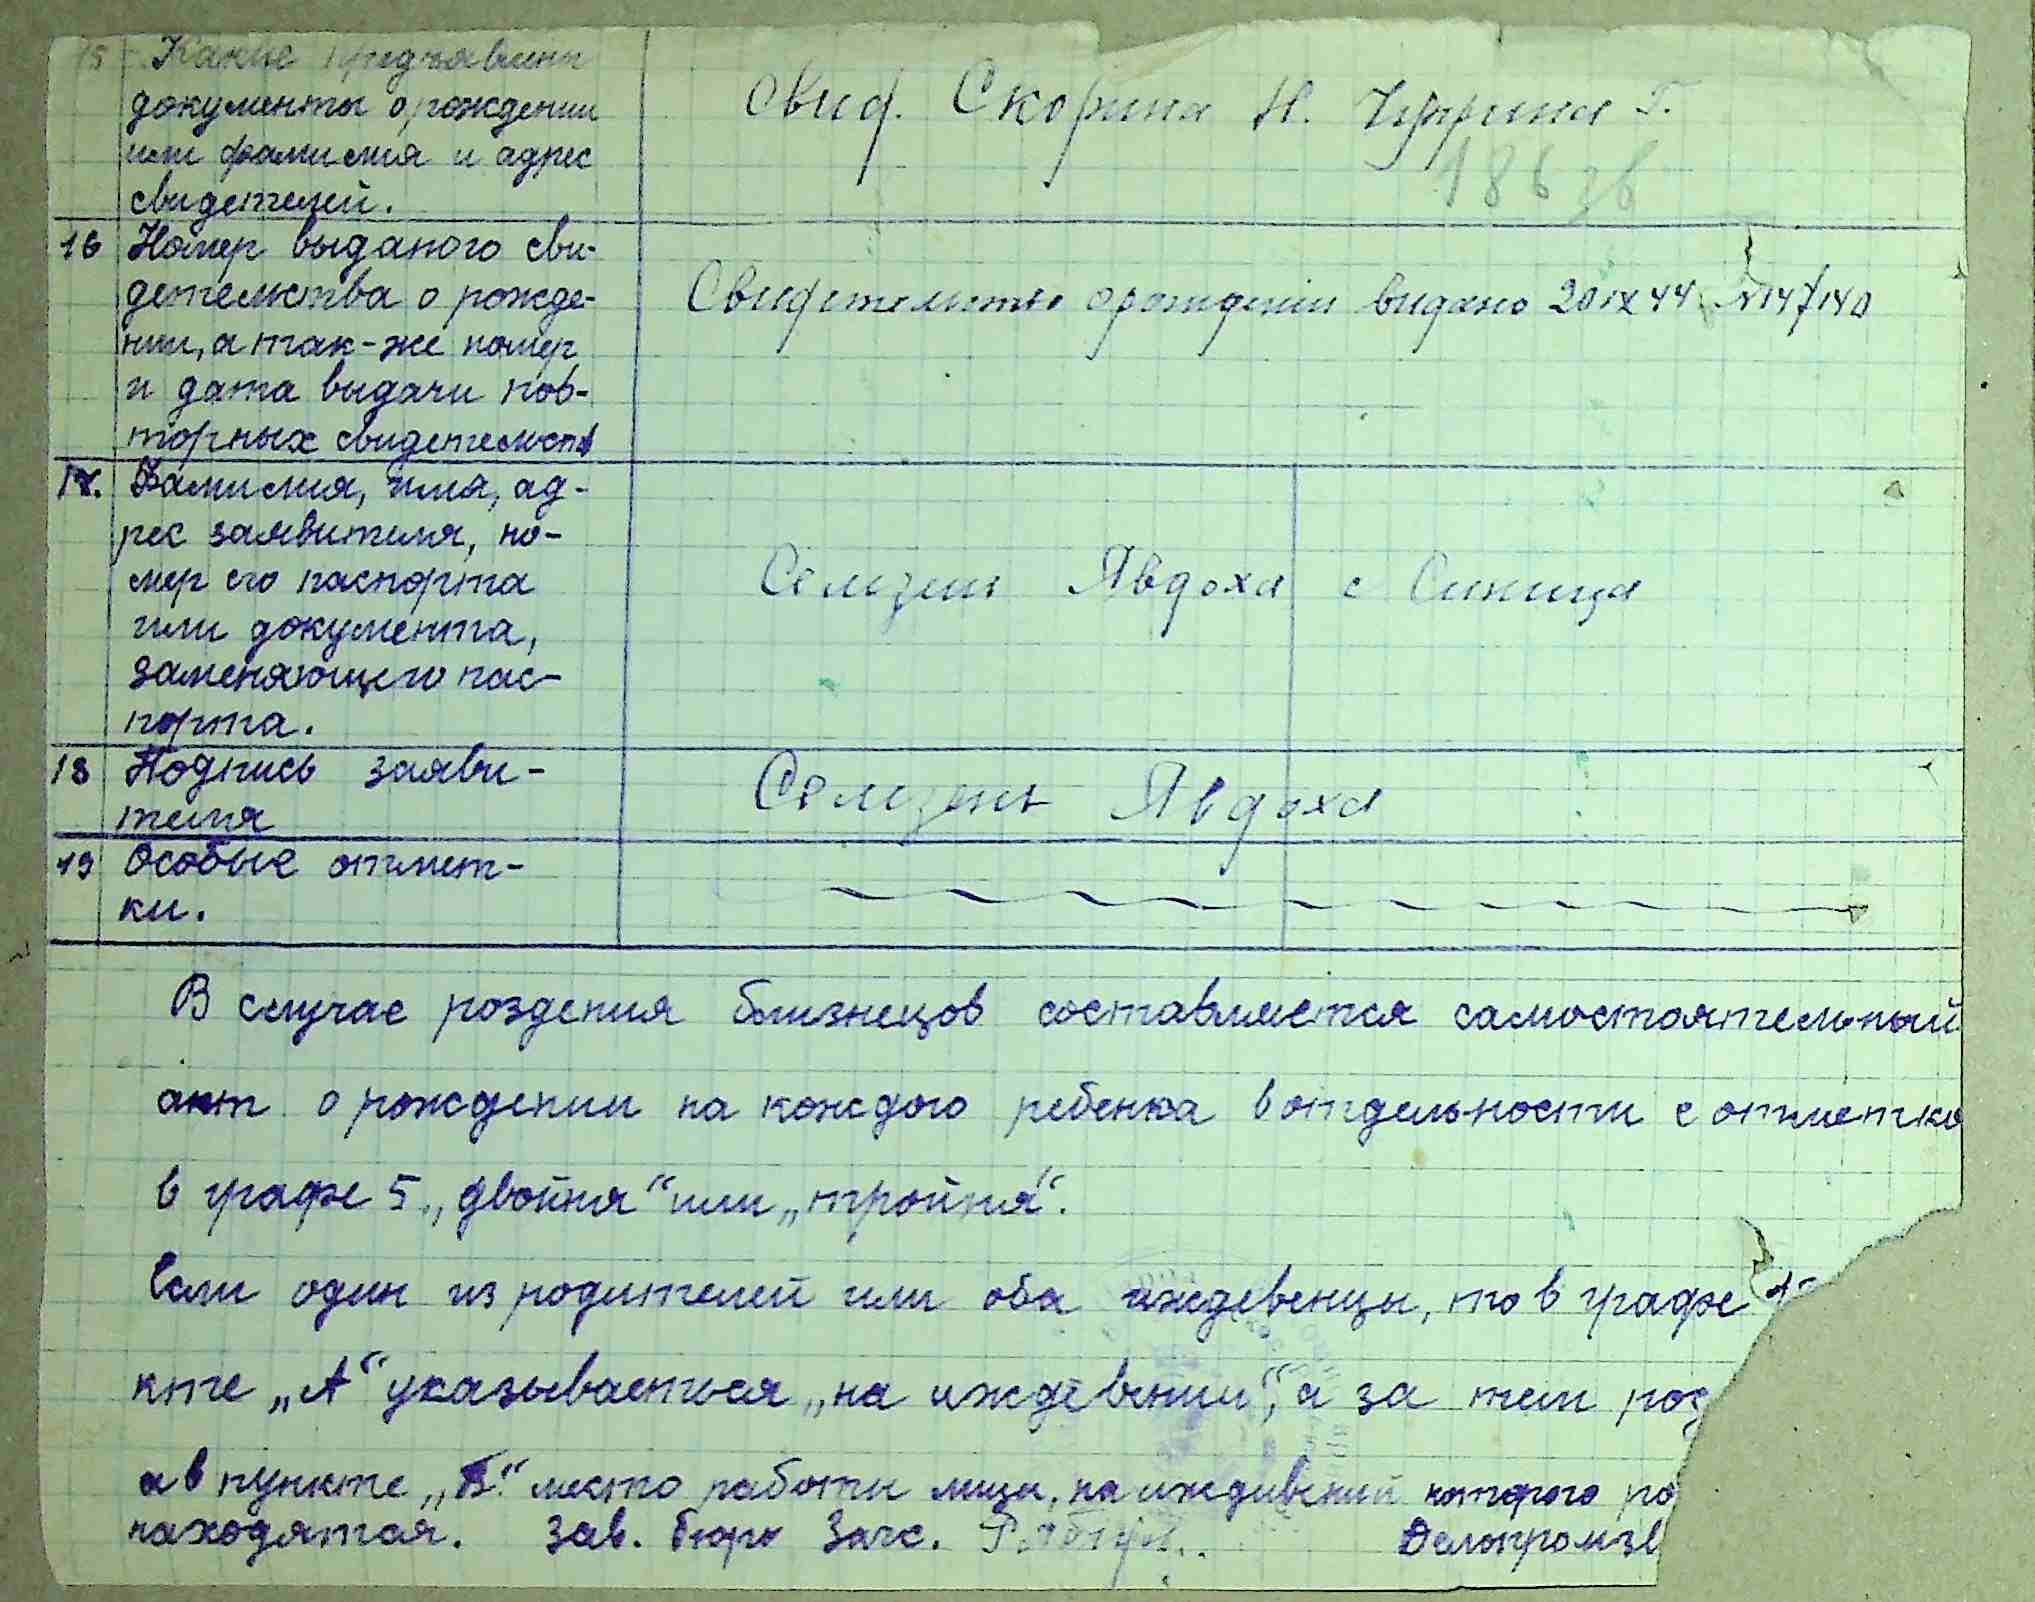 15 Какие предъявлены
документы о рождении
или фамилия и адрес
свидетелей.
Свид. Скорина Н. Г.
186 зв
16 Номер выданого сви-
детельства о рожде-
нии, а так-же номер
и дата выдачи пов-
торных свидетельств
Свидетельство о рождении видано 20 IX 44 №147140
17. Фамилия, имя, ад-
рес заявителя, но-
мер его паспорта
или документа,
заменяющего пас-
порта.
Селезень Явдоха с Синица
18 Подпись заяви-
теля
Селезень Явдоха
19 Особые отмет-
ки.
В случае роздения близнецов составляется самостоятельный
акт о рождении на каждого ребенка в отдельности с отметко
в графе 5 „двойня“ или „тройня“.
Если один из родителей или оба иждевенцы, то в графе
кте „А“ указывается „на иждевении“, а за тем род
а в пункте „Б“ место работы лица, на иждивений которого ро
находятся. Зав. бюро Загс. Делопроизв